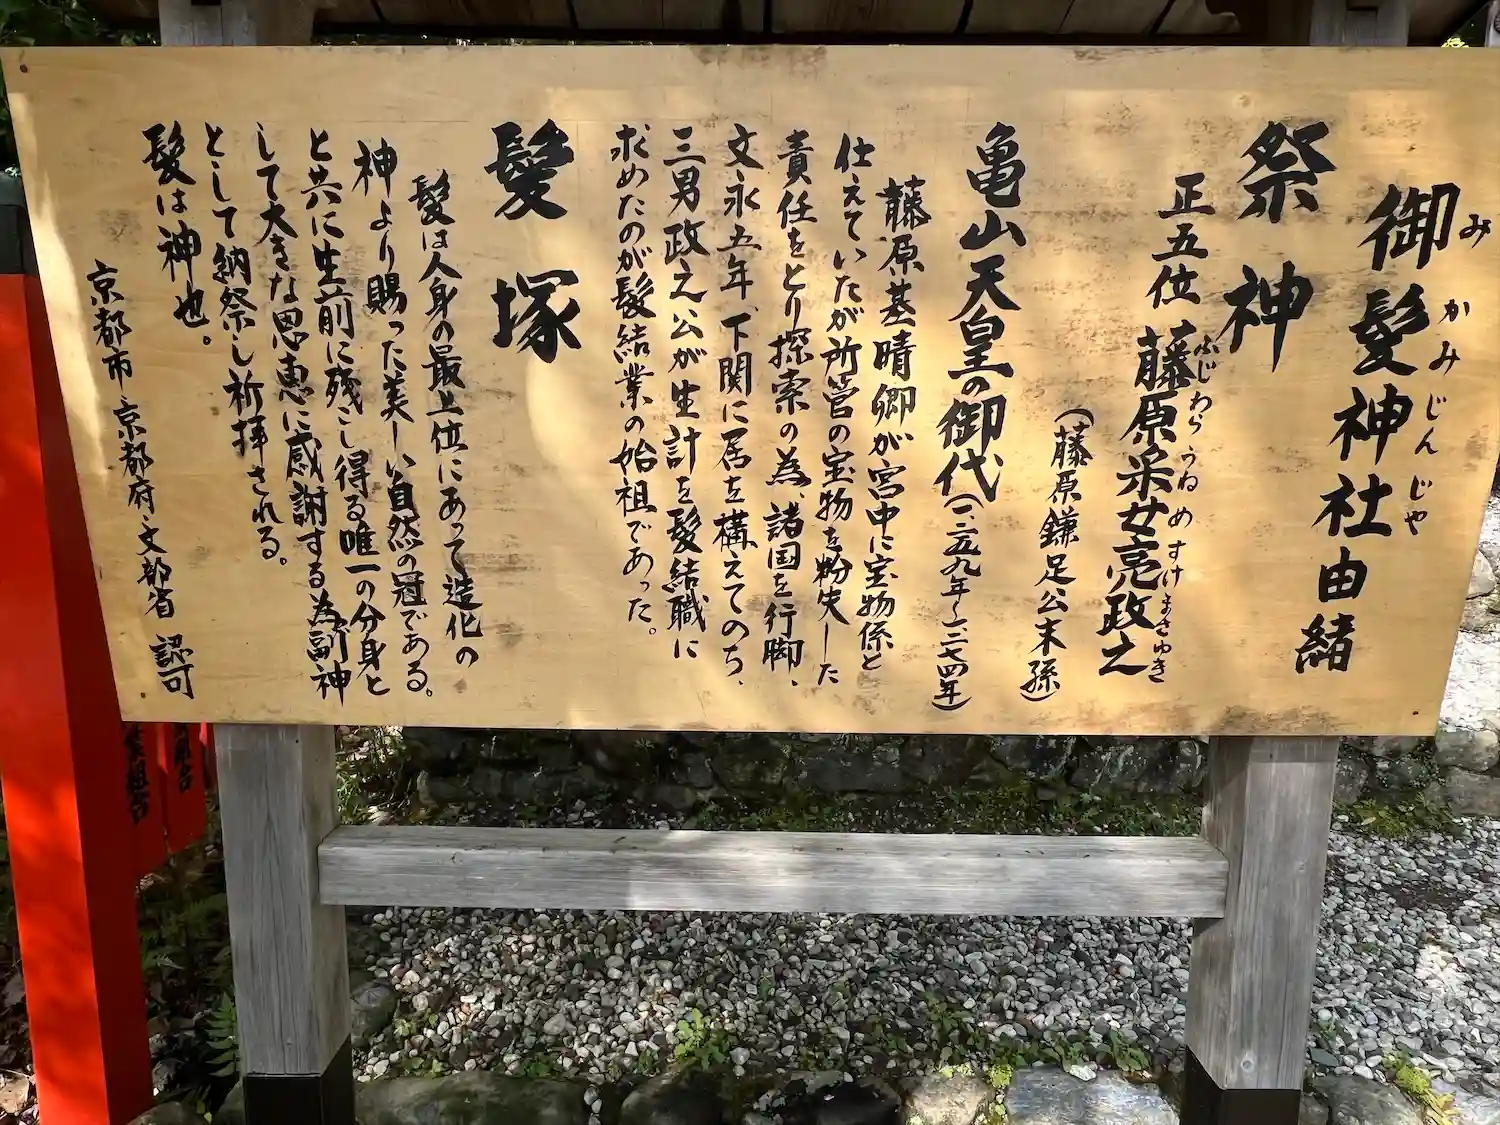 御髪神社由緒
みかみじんじゃ
祭神
正五位 藤原采女亮政之
ふじわらうねめすけまさゆき
(藤原鎌足公末孫)
亀山天皇の御代(一二五九年~一二七四年)
藤原基晴卿が宮中に宝物係と
仕えていたが所管の宝物を粉失した
責任をとり探索の為、諸国を行脚、
文永五年、下関に居を構えてのち、
三男政之公が生計を髪結職に
求めたのが髪結業の始祖であった。
髪塚
髪は人身の最上位にあって造化の
神より賜った美しい自然の冠である。
と共に生前に残し得る唯一の分身と
して大きな恩恵に感謝する為副神
として納祭し祈拝される。
髪は神也。
京都市・京都府・文部省 認可